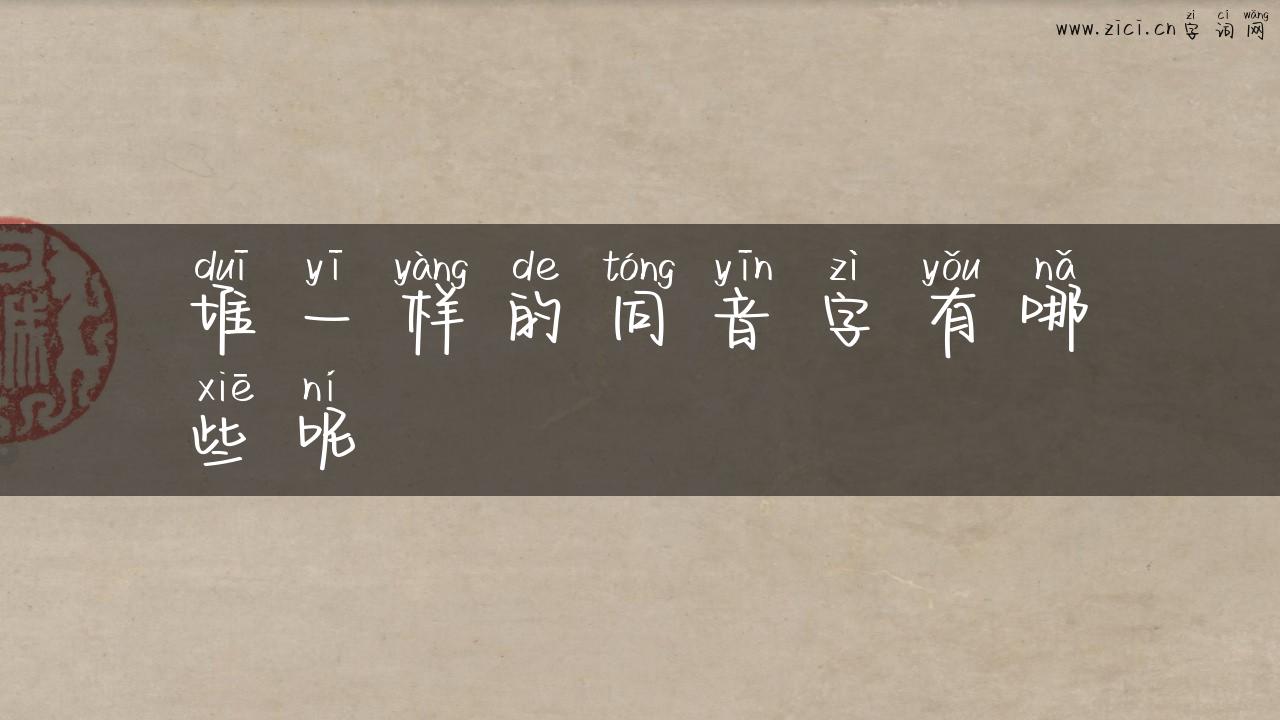 zì cí wǎng
www.zici.cn字词网
duī yī yàng de tóng yīn zì yǒu nǎ
堆一样的同音字有哪
xiē ní
些呢